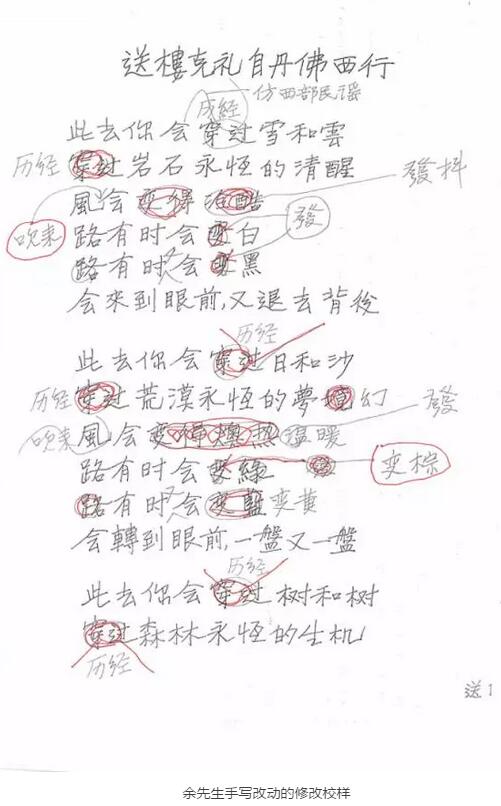 送樓克礼自丹佛西行
仿西部民谣
成经
此去你会穿过雪和雲
历经 穿过岩石永恆的清醒
發抖
風会变得冷酷
發
吹来
路有时会变白
路有时又会变黑
会來到眼前,又退去背後
历经
此去你会穿过日和沙
历经 穿过荒漠永恆的夢境幻
發
吹来 風会变得燠热 温暖
路有时会变綠
变棕
路有时又会变藍 变黄
会轉到眼前,一盤又一盤
历经
此去你会穿过树和树
穿过森林永恆的生机
历经
送1
余先生手写改动的修改校样